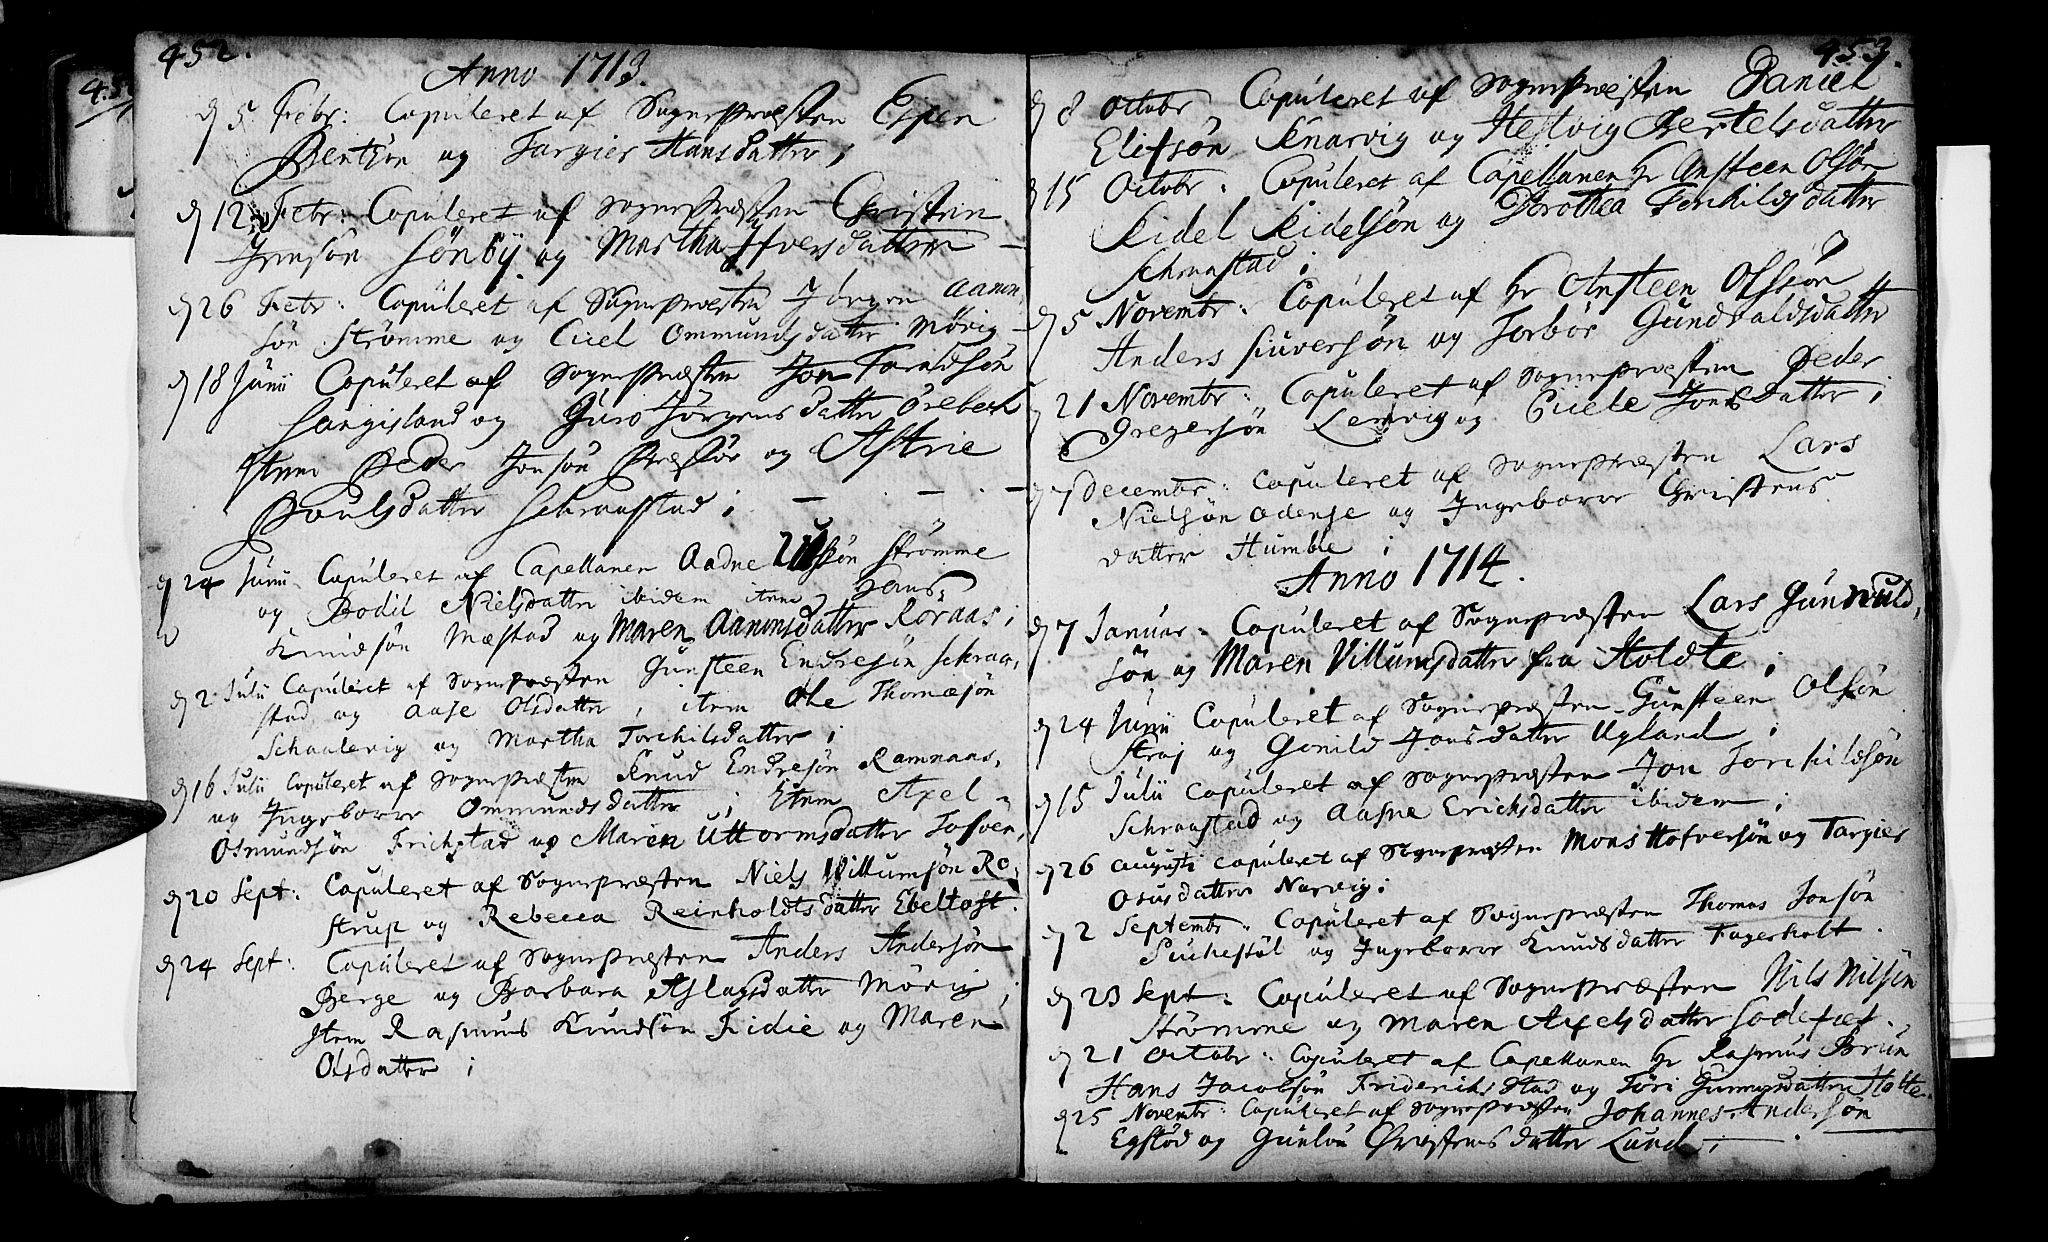 452.
Anno 1713.
d 5 Febr: Copuleret af Sognepræsten Espen
Bentsøn og Targier Hansdatter;
d 12 Febr: Copuleret af Sognepræsten Christen
Jensøn Sønby og Martha Ifversdatter
d 26 Febr: Copuleret af Sognepræsten Jørgen Aanon
søn Strømme og Ciel Ommundsdatter Møvig
d 18 Junii Copuleret af Sognepræsten Jon
Langisland og Guro Jørgensdatter Örebech
Item Peder Jonsøn og Astrie
Povelsdatter Schraastad;
d 24 Junii Copuleret af Capellanen Aadne Strømme
og Bodil Nielsdatter ibidem item Hans
Knudsøn Mæstad og Maren Aanonsdatter Roraas;
d 2 Julii Copuleret af Sognepræsten Gunsteen Endresøn Schraa,
stad og Aase Olsdatter, item Ole Thomæsøn
Schaalevig og Martha Torchilsdatter;
d 16 Julii Copuleret af Sognepræsten Knud Endresøn Ramnaas,
og Ingeborre Ommundsdatter; Item Axel
Osmundsøn Frichstad og Maren Uttormsdatter
d 20 Sept: Copuleret af Sognepræsten Niels Villumsøn Ro,
strup og Rebecca Reinholdtsdatter Ebeltoft.
d 24 Sept: Copuleret af Sognepræsten Anders Andersøn
Berge og Barbara Aslagsdatter Møvig;
Item Rasmus Knudsøn Fidie og Maren
Olsdatter;
453.
d 8 Octobr Copuleret af Sognepræsten Daniel
Elifsøn Knarvig og Hestvig Bertelsdatter
d 15 Octobr: Copuleret af Capellanen hr Ansteen Olsøn
Kidel Kidelsøn og Dorothea Torchildsdatter
Schraastad;
d 5 Novembr: Copuleret af hr Ansteen Olssøn
Anders Siuversøn og Torbør Gundvaldsdatter
21 Novembr: Copuleret af Sognepræsten Peder
Gregersøn Lemvig og Ciele Jonsdatter;
d 7 Decembr: Copuleret af Sognepræsten Lars
Nielsøn Odense og Ingeborre Christens
datter Humble;
Anno 1714.
d 7 Januar: Copuleret af Sognepræsten Lars Gundvald,
søn og Maren Villumsdatter fra Holdte;
d 24 Junii Copuleret af Sognepræsten Gunsteen Olsøn
Straj og Gonild Jonsdatter Ugland;
d 15 Julii Copuleret af Sognepræsten Jon Torchildsøn
Schraastad og Aasne Erichsdatter ibidem;
d 26 Augusti Copuleret af Sognepræsten Mons Hofversøn og Targier
Osusdatter Narvig;
d 2 Septembr: Copuleret af Sognepræsten Thomas Jonsøn
og Ingeborre Knudsdatter Fagerholt.
d 23 Sept: Copuleret af Sognepræsten Nils Nilsøn
Strømme og Maren Axelsdatter
d 21 Octobr: Copuleret af Capellanen hr Rasmus Brun
Hans Jacobsøn Friderichstad og Tøri Gunnersdatter Holte.
d 25 Novembr: Copuleret af Sognepræsten Johannes Andersøn
Egstød og Gunlou Christensdatter Lund;